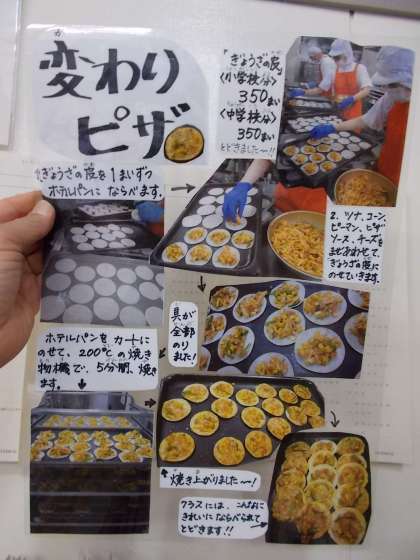 変わり
ピザ
「ぎょうざの皮」
〈小学校分〉
350まい
〈中学校分〉
350まい
とどきました〜!!
1.ぎょうざの皮を1まいずつ
ホテルパンにならべます。
2. ツナ、コーン、
ピーマン、ピザ
ソース、チーズを
まぜあわせて、
ぎょうざの皮に
のせていきます。
具が
全部
のり
ました!
ホテルパンを カートに
のせて、200℃の焼き
物機で、5分間、焼き
ます。
焼き上がりました〜!
クラスには、こんなに
きれいにならべられて
とどきます!!